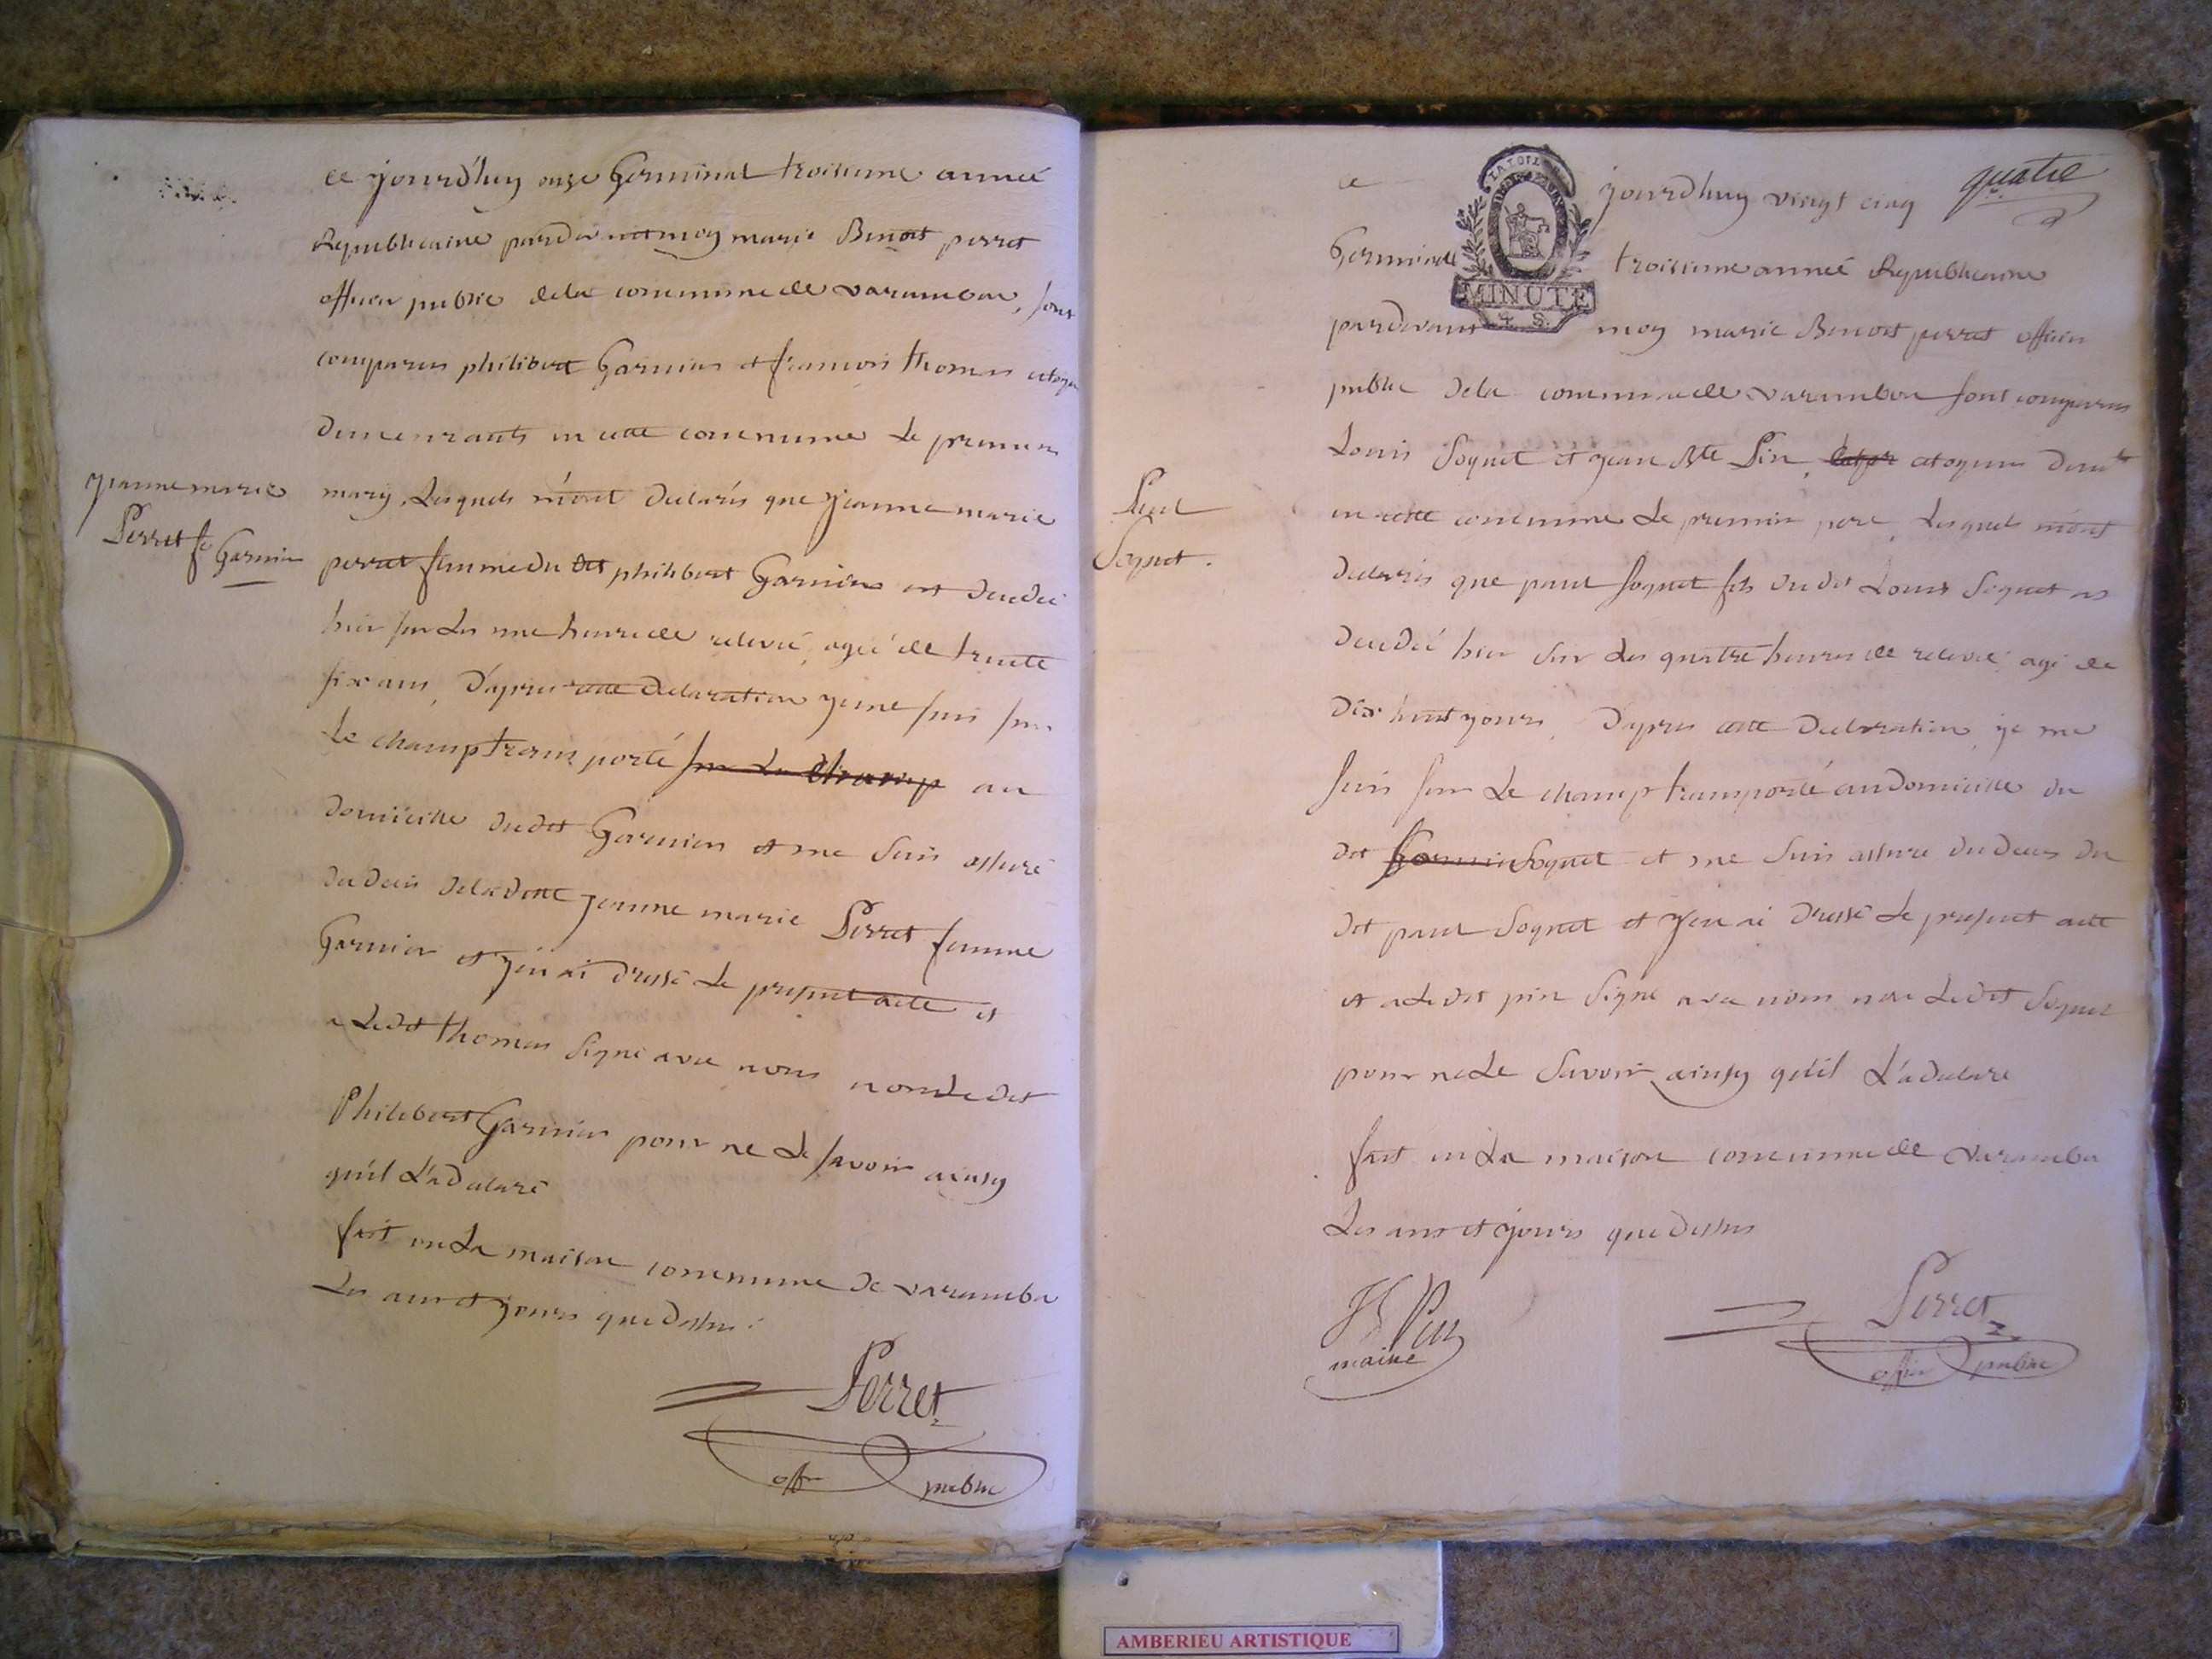 ce jourd'huy onze Germinal troisieme année
Republicaine pardevant moy marie Benoit perret
officier public de la commune de varambon, sont
comparus philibert Garnier et francois thomas citoyen
demeurants en cette commune Le premier
mary, Lesquels m'ont declarés que jeanne marie
perret femme du dit philibert Garnier est decedée
hier sur Les une heure de relevée, agée de trente
six ans, D'apres cette declaration je me suis sur
Le champ transporté sur Le champ au
domicille dudit Garnier et me suis assuré
du deces de la ditte jeanne marie Perret femme
Garnier et j'en ai dressé Le present acte et
a Ledit thomas signé avec nous non Ledit
Philibert Garnier pour ne Le savoir ainsy
qu'il L'a declaré
fait en La maison commune de varambon
Les ans et jours que dessus.
jeanne marie
Perret fe Garnier
Perret
offier public
quatre
LA LOI
MINUTE
4. S.
ce jourd'huy vingt cinq
Germinal troisieme année Republicaine
pardevant moy marie Benoit perret officier
public de la commune de varambon sont comparus
Louis Soquet et jean Bte Pin, citoyens demts
en cette commune Le premier pere, Lesquels m'ont
declarés que paul soquet fils du dit Louis Soquet es
decedé hier sur Les quatre heures de relevée, agé de
dix huit jours, D'apres cette declaration, je me
suis sur Le champ transporté au domicille du
dit Garnier Soquet et me suis assuré du deces du
dit paul Soquet et j'en ai dressé Le present acte
et a Le dit pin signé avec nous non Ledit Soquet
pour ne Le savoir ainsy qu'il L'a declaré
fait en La maison commune de varambon
Les ans et jours que dessus
Paul
Soquet.
JB Pin
maire
Perret
officier public
AMBERIEU ARTISTIQUE